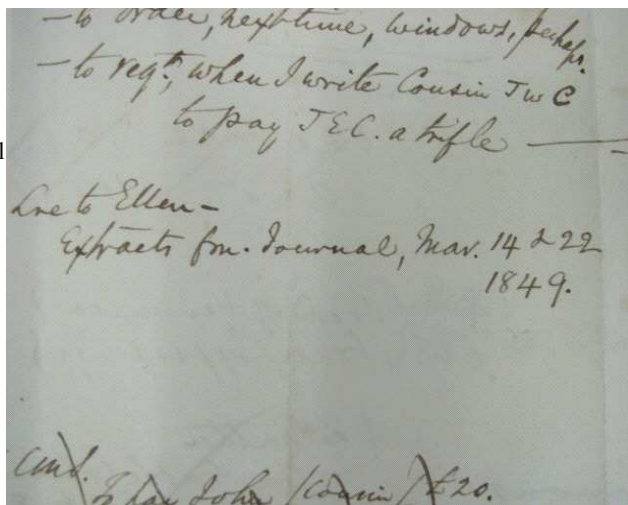 — to order, next time, windows, perhaps.
— to reqt., when I write Cousin J W C
to pay J E C. a trifle —
Love to Ellen —
Extracts fm. Journal, Mar. 14 & 22
1849.
To pay John (Cousin) £20.